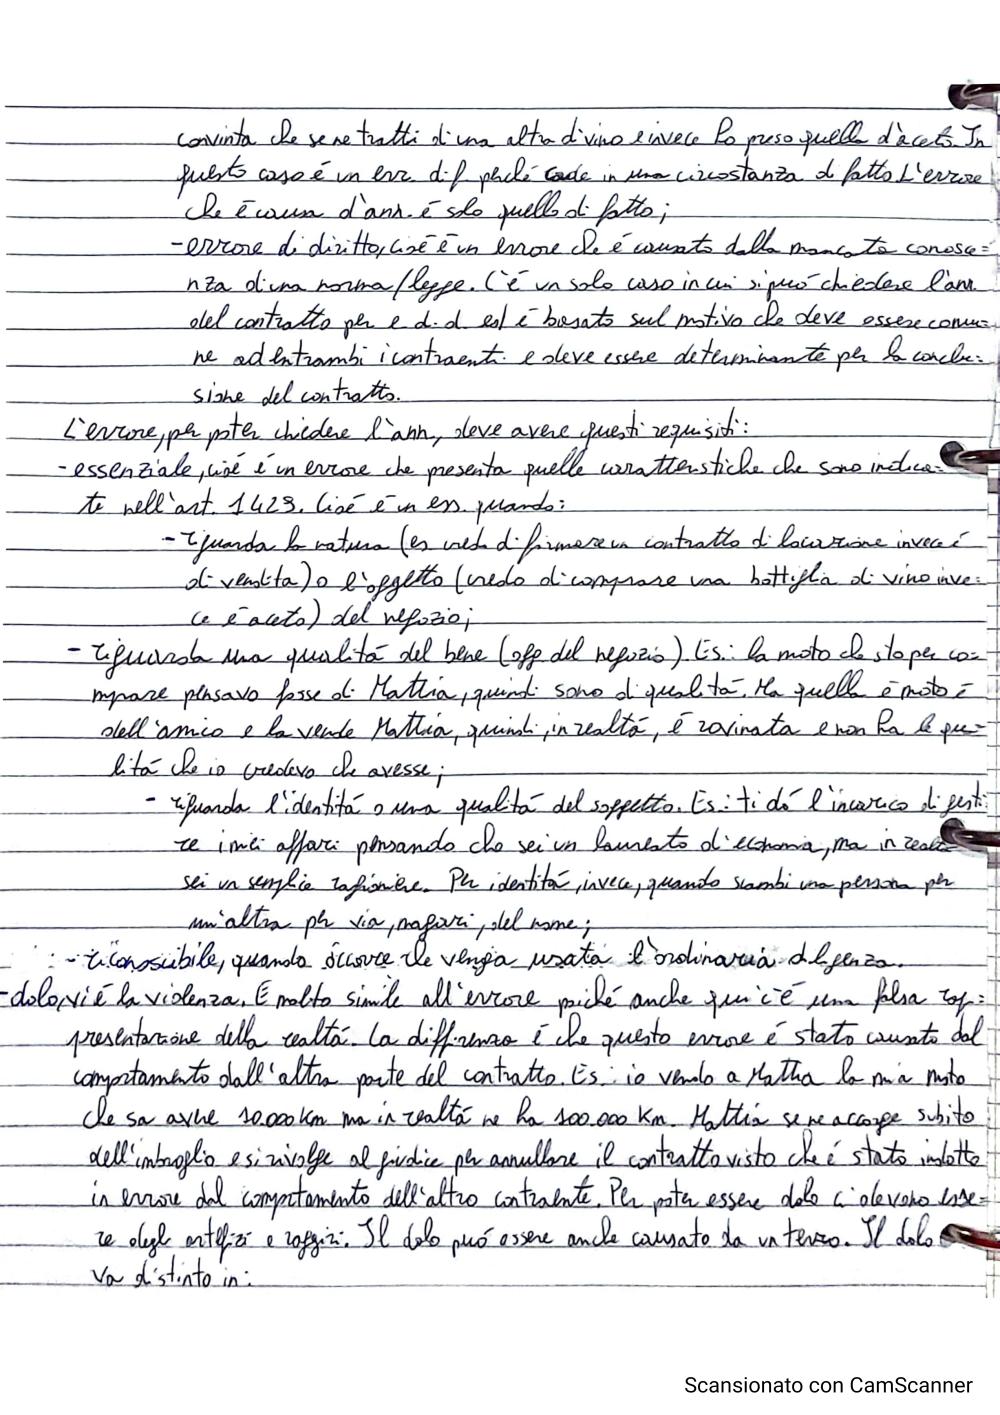 convinta che se ne tratti di una altra di vino e invece ho preso quella d'aceto. In
questo caso é un err. di f perché cade in una circostanza di fatto. L'errore
che é causa d'ann. é solo quello di fatto;
-errore di diritto, cioé é un errore che é causato dalla mancata conosce=
nza di una norma/legge. C'é un solo caso in cui si puó chiedere l'ann
del contratto per e d. d ed é basato sul motivo che deve essere comu=
ne ad entrambi i contraenti e deve essere determinante per la conclu=
sione del contratto.
L'errore, per poter chiedere l'ann, deve avere questi requisiti:
-essenziale, cioé é un errore che presenta quelle caratteristiche che sono indica=
te nell'art. 1423. Cioé é un ess. quando:
-riguarda la natura (es credo di firmare un contratto di locazione invece é
di vendita) o l'oggetto (credo di comprare una bottiglia di vino inve=
ce é aceto) del negozio;
- riguarda una qualitá del bene (ogg del negozio). Es.: la moto che sto per co=
mprare pensavo fosse di Mattia, quindi sono di qualitá. Ma quella é moto é
dell'amico e la vende Mattia, quindi, in realtá, é rovinata e non ha le qua=
litá che io credevo che avesse;
- riguarda l'identitá o una qualitá del soggetto. Es: ti dó l'incarico di gesti
re i miei affari pensando che sei un laureato d'economia, ma in realtá
sei un semplice ragioniere. Per identitá, invece, quando scambi una persona per
un'altra per via, magari, del nome;
- riconoscibile, quando occorre che venga usata l'ordinaria diligenza.
-dolo, vi é la violenza. É molto simile all'errore poiché anche qui c'é una falsa rap=
presentazione della realtá. La differenza é che questo errore é stato causato dal
comportamento dall'altra parte del contratto. Es: io vendo a Mattia la mia moto
che sa avere 10.000 km ma in realtá ne ha 100.000 Km. Mattia se ne accorge subito
dell'imbroglio e si rivolge al giudice per annullare il contratto visto che é stato indotto
in errore dal comportamento dell'altro contraente. Per poter essere dolo ci devono esse=
re degli artifizi e raggiri. Il dolo puó essere anche causato da un terzo. Il dolo
va distinto in:
Scansionato con CamScanner